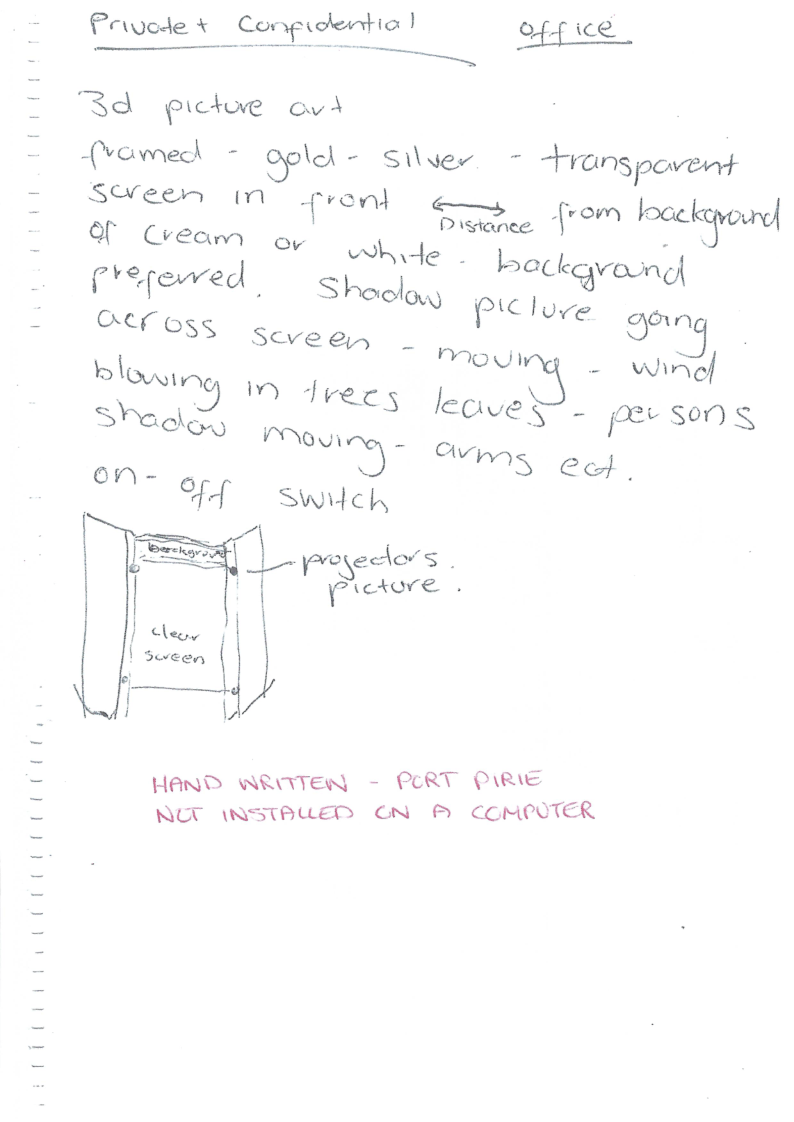 Private + Confidential office
3d picture art
framed - gold - silver - transparent
screen in front Distance from background
of cream or white. background
preferred. Shadow picture going
across screen - moving - wind
blowing in trees leaves - persons
shadow moving - arms ect.
on - off switch
background
projectors.
picture.
clear
screen
HAND WRITTEN - PORT PIRIE
NOT INSTALLED ON A COMPUTER